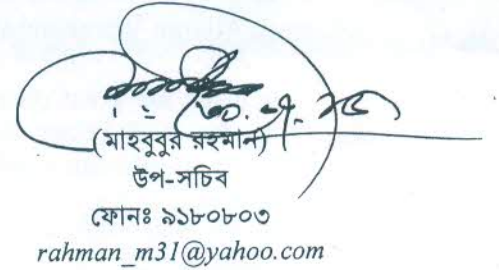 (মাহবুবুর রহমান)
উপ-সচিব
ফোনঃ ৯১৮০৮০৩
rahman_m31@yahoo.com